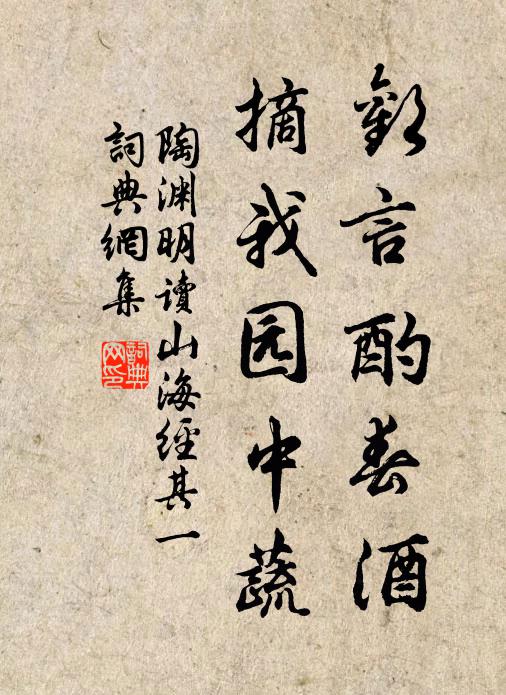 欢言酌春酒
摘我园中蔬
陶渊明读山海經其一
詞典網集
詞典网印